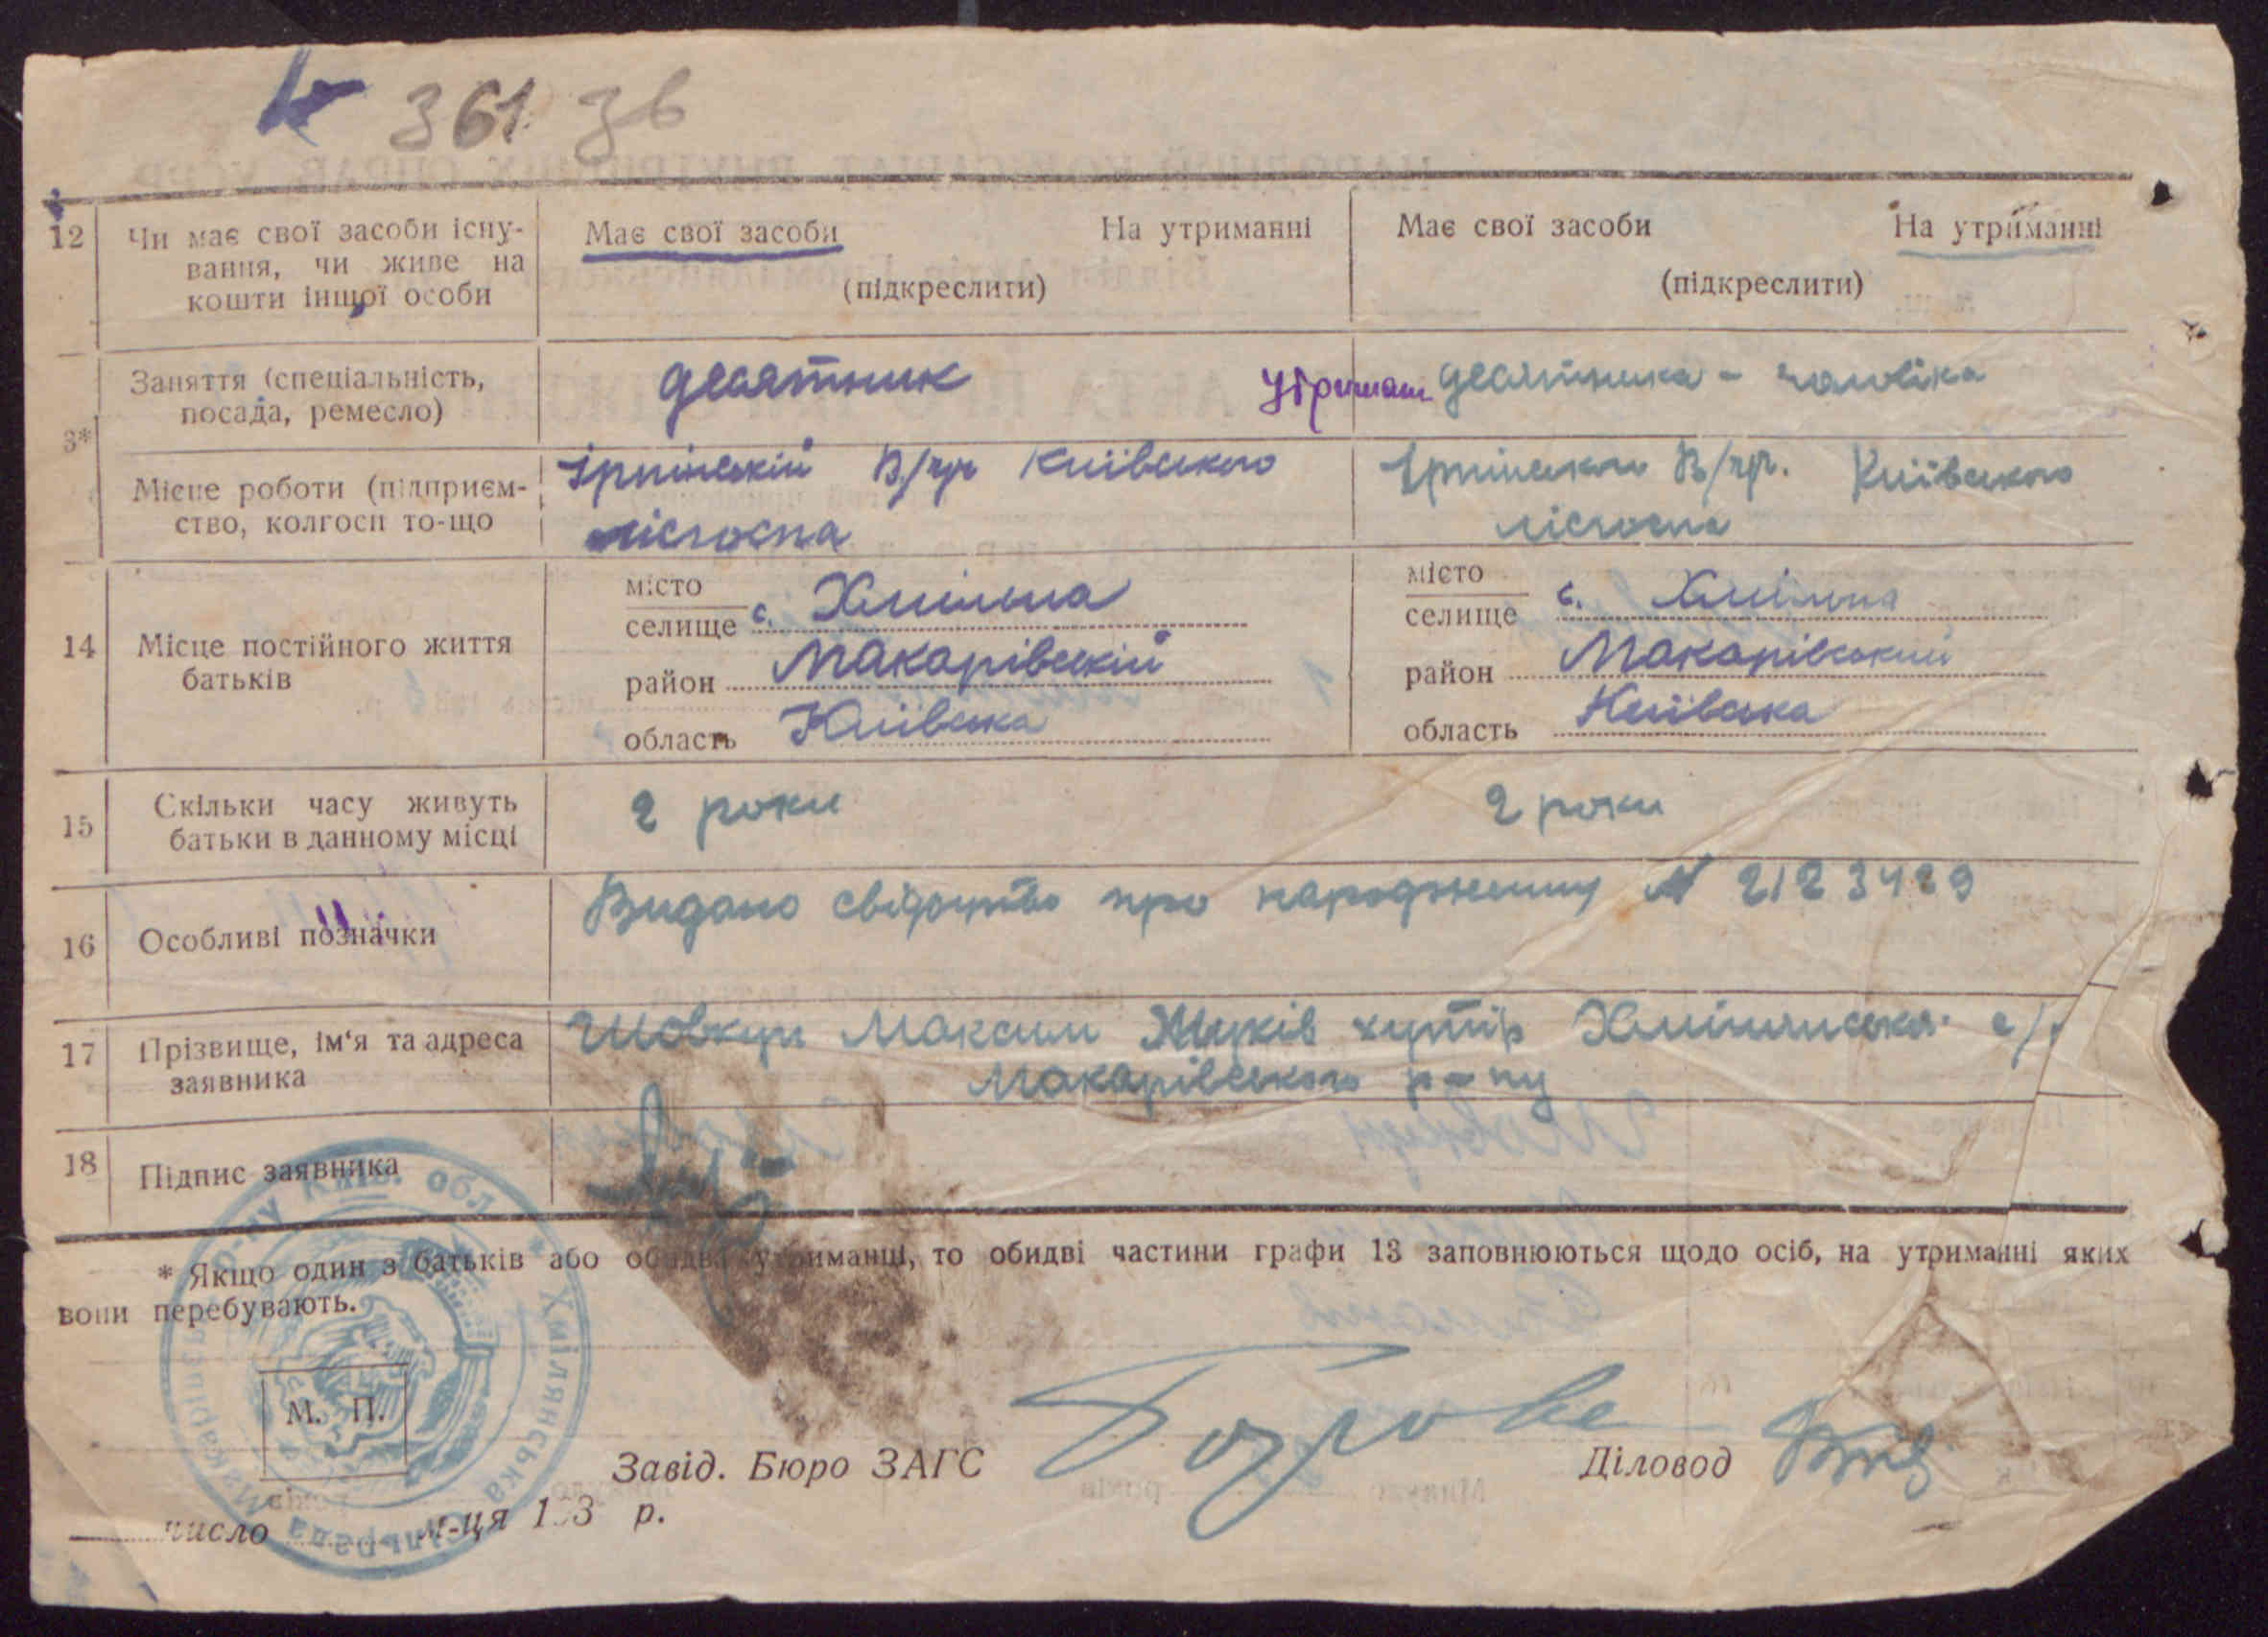 361 зв
12 Чи має свої засоби існу-
вання, чи живе на
кошти іншої особи
Має свої засоби На утриманні
(підкреслити)
Має свої засоби На утриманні
(підкреслити)
3*
Заняття (спеціальність,
посада, ремесло)
десятник
Утриман десятника - чоловіка
Місце роботи (підприєм-
ство, колгосп то-що
Ірпінській В/чр Київського
лісгоспа
Ірпінського В/чр. Київського
лісгоспа
14 Місце постійного життя
батьків
місто
селище с. Хмільна
район Макарівскій
область Київська
місто
селище с. Хмільна
район Макарівський
область Київська
15 Скільки часу живуть
батьки в данному місці
2 роки
2 роки
16 Особливі позначки
Видано свідоцтво про народження № 2123429
17 Прізвище, ім'я та адреса
заявника
Шовкун Максим Жуків хутір с/
Макарівського р-ну
18 Підпис заявника
* Якщо один з батьків або обидва утриманці, то обидві частини графи 13 заповнюються щодо осіб, на утриманні яких
вони перебувають.
М. П.
Завід. Бюро ЗАГС
Діловод
число м-ця 193 р.
Хмілянська сільрада Макарівського р-ну Київ. обл.